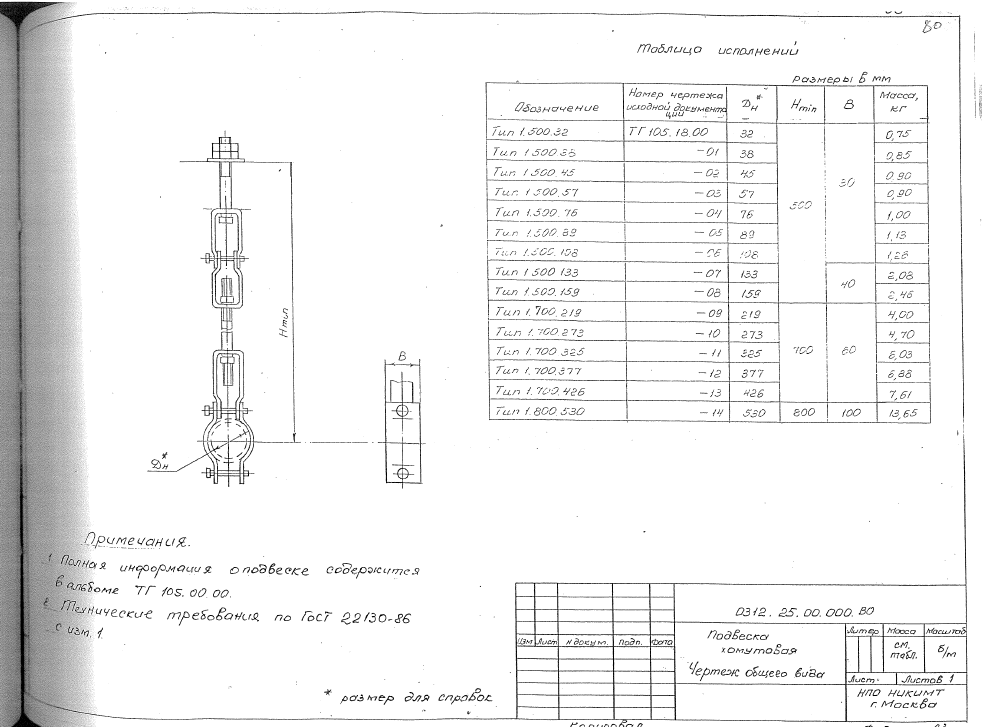 80
Таблица исполнений
размеры в мм
Обозначение Номер чертежа исходной документации Дн* Hmin В Масса, кг
Тип 1.500.32 ТГ 105.18.00 32 500 30 0,75
Тип 1.500.38 -01 38 0,85
Тип 1.500.45 -02 45 0,90
Тип 1.500.57 -03 57 0,90
Тип 1.500.76 -04 76 1,00
Тип 1.500.89 -05 89 1,13
Тип 1.500.108 -06 108 1,28
Тип 1.500.133 -07 133 40 2,08
Тип 1.500.159 -08 159 2,46
Тип 1.700.219 -09 219 700 60 4,00
Тип 1.700.273 -10 273 4,70
Тип 1.700.325 -11 325 6,03
Тип 1.700.377 -12 377 6,88
Тип 1.700.426 -13 426 7,61
Тип 1.800.530 -14 530 800 100 13,65
Hmin
В
Дн*
Примечания.
1. Полная информация о подвеске содержится
в альбоме ТГ 105.00.00.
2. Технические требования по ГОСТ 22130-86
с изм. 1.
* размер для справок
0312.25.00.000.ВО
Изм Лист N докум. Подп. Дата
Подвеска
хомутовая
Чертеж общего вида
Литер Масса Масштаб
см. табл. б/м
Лист Листов 1
НПО НИКИМТ
г. Москва
Копировал